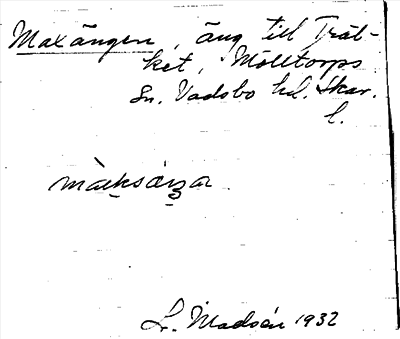 Maxängen, äng till Trät-
ket, Mölltorps
sn. Vadsbo hd. Skar.
l.
L. Madsén 1932